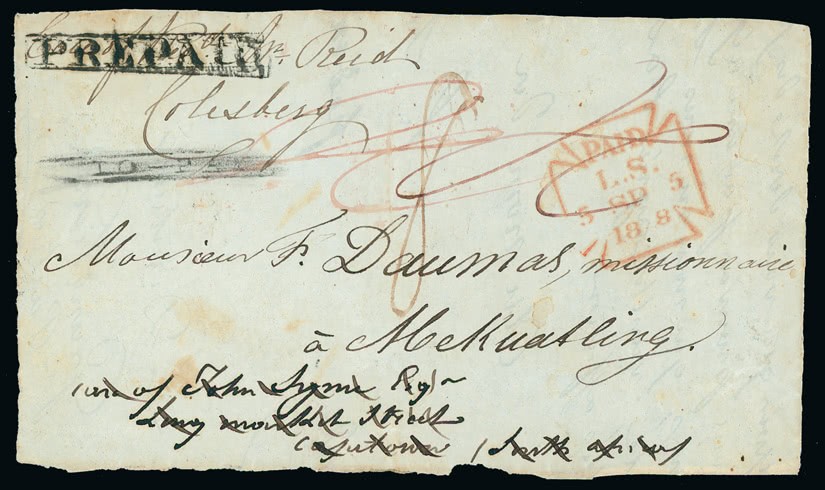 PREPAID
Care of Jn. Reid
Colesberg
TO PAY
PAID
L.S.
5 SP 5
18 8
8
Monsieur F. Daumas, missionnaire
à MeKuatling.
care of John Syme Esq
Long market Street
Capetown South Africa